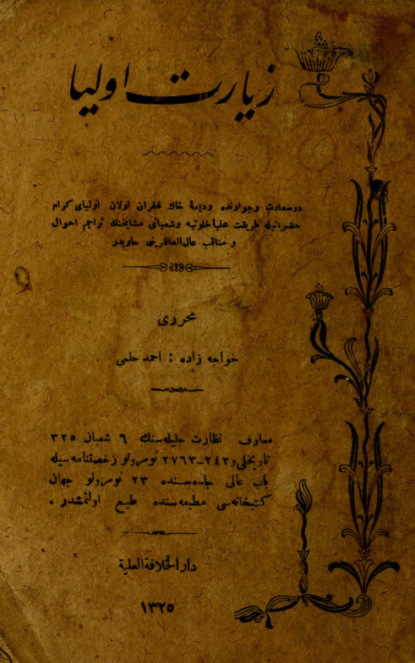 زيارت اوليا
درسعادت وجوارنده وديعهٔ خاك غفران اولان اولياى كرام
حضراتيله طريقت عليهٔ خلوتيه وشعبانى مشايخنك تراجم احوال
و مناقب عاليه‌لرينى حاويدر
محررى
خواجه زاده : احمد حلمى
معارف نظارت جليله‌سنك ٦ شعبان ٣٢٥
تاريخلى و ٢٤٣-٢٧٦٣ نومرولو رخصتنامه سيله
باب عالى جاده‌سنده ٢٣ نومرولو جهان
كتبخانه‌سى مطبعه‌سنده طبع اولنمشدر .
دار الخلافة العلية
١٣٢٥